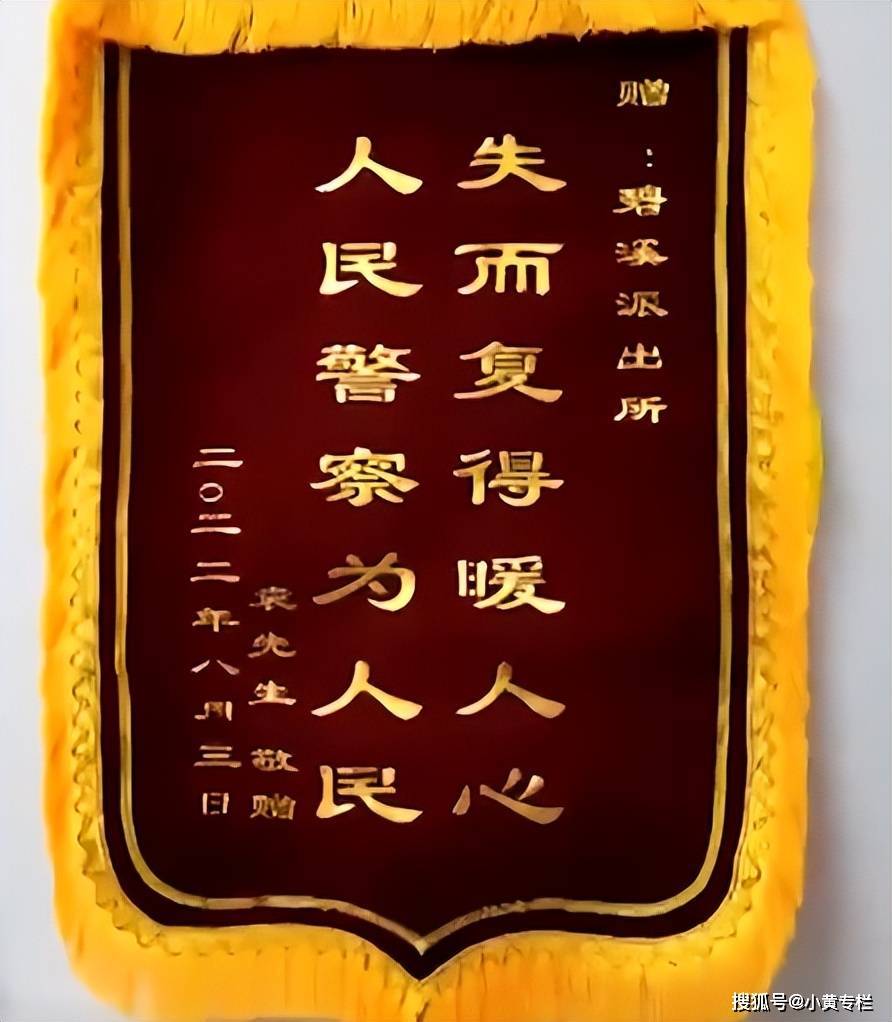 赠：碧溪派出所
失而复得暖人心
人民警察为人民
袁先生 敬赠
二〇二二年八月三日
搜狐号@小黄专栏